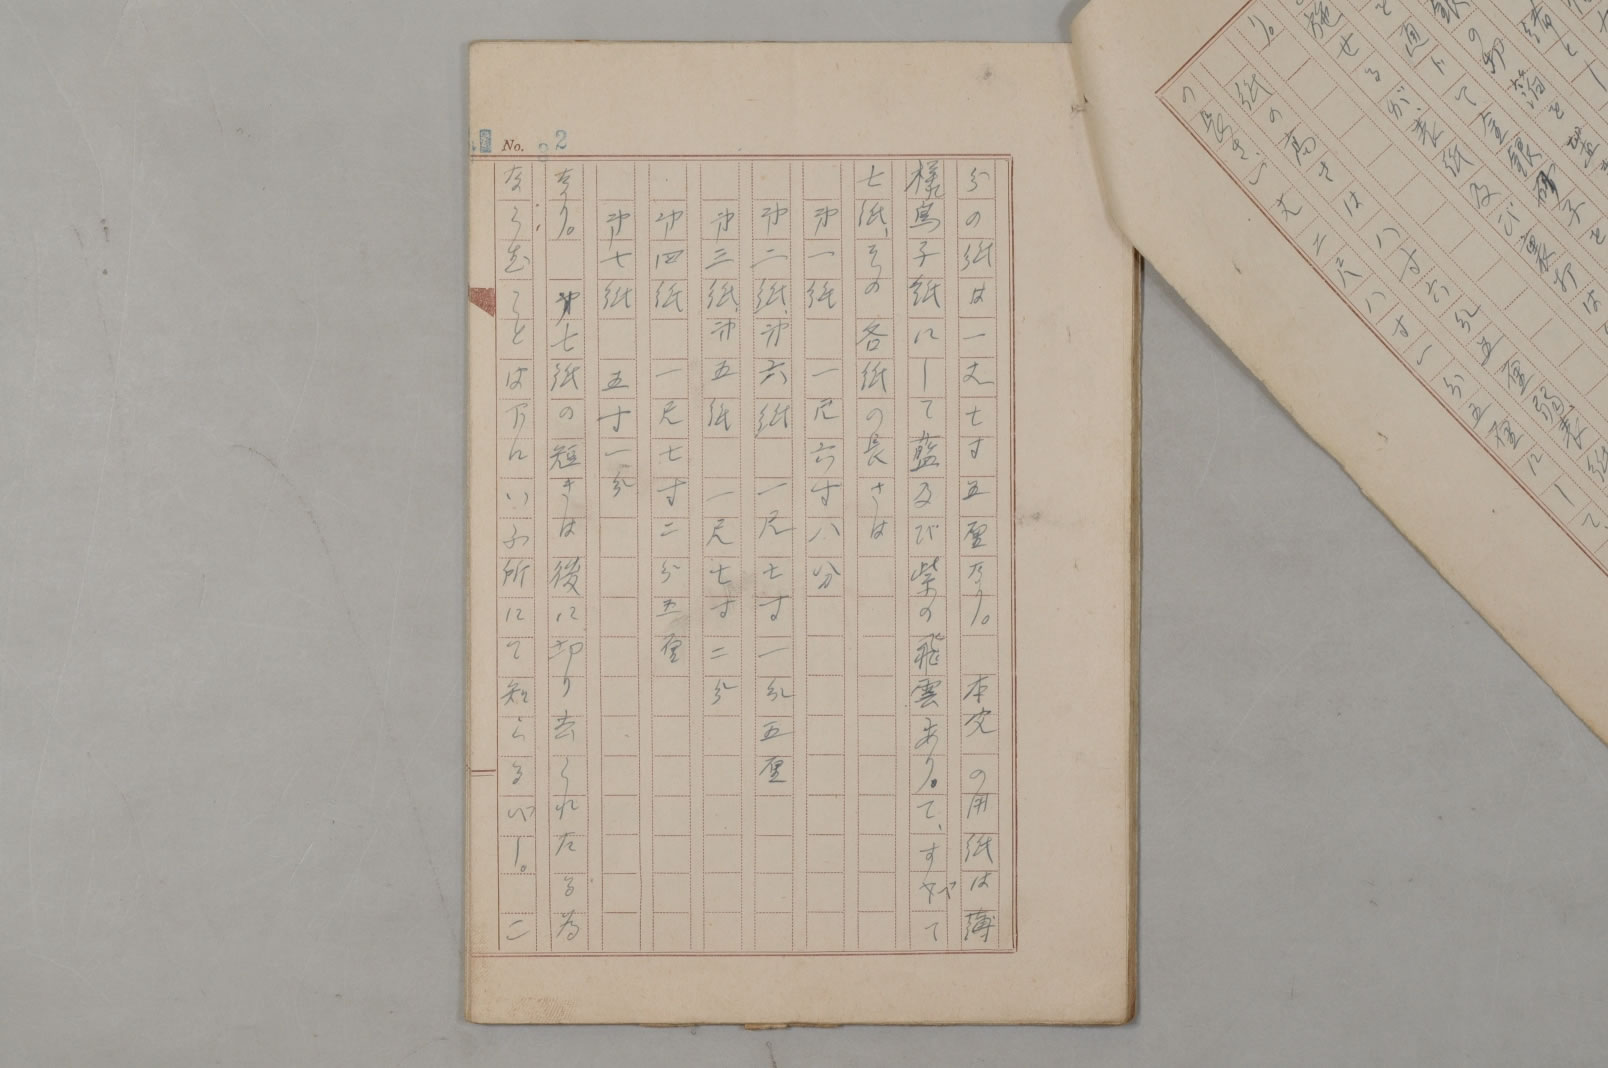 No. 2
分の紙は一丈七寸五厘なり。 本文の用紙は薄
様鳥子紙にして藍及び紫の飛雲あり。て、すべて
七紙、その各紙の長さは
第一紙 一尺六寸八分
第二紙、第六紙 一尺七寸一分五厘
第三紙、第五紙 一尺七寸二分
第四紙 一尺七寸二分五厘
第七紙 五寸一分
なり。 第七紙の短きは後に切り去られたる為
ならむことは下にいふ所にて知らるべし。 こ
紙の高さは八寸六分五厘弱、表紙
の長さ、丈二尺八寸、分五厘にして、